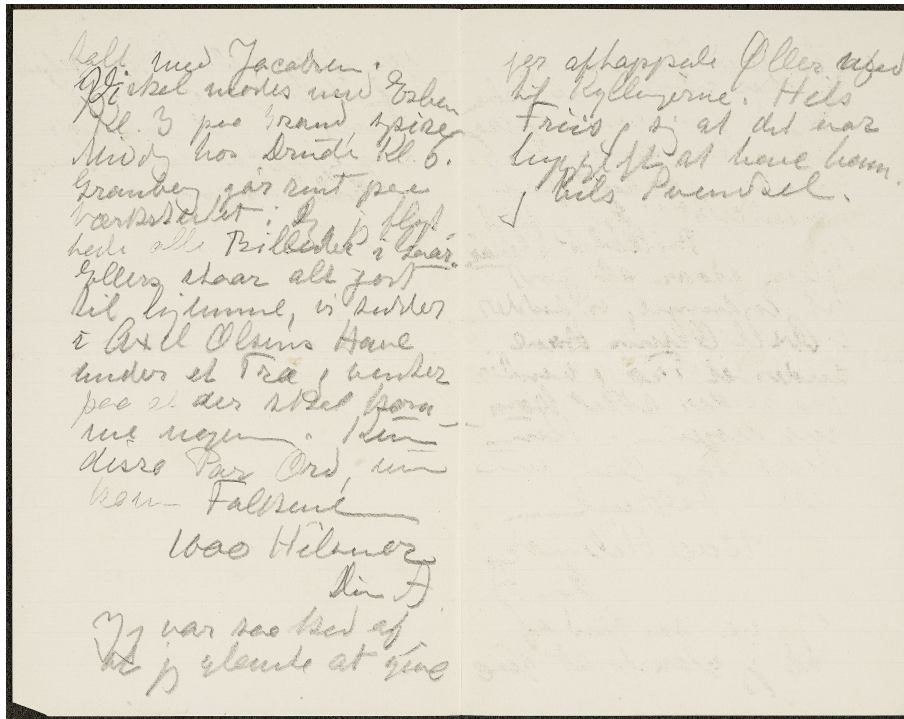 talt med Jacobsen.
Vi skal mødes med Esben
Kl. 3 paa Grand, spise
Middg hos Drude Kl 6.
Granberg går rent paa
Værkstedet; Jeg
alle Billeder i Saar.
Ellers staar alt godt
til hjemme, vi sidder
i Axel Olsens Have
under et Træ, venter
paa at der skal kom-
me nogen. Kun
disse Par Ord, nu
kom Falksene
1000 Hilsner
Din A
Jeg var saa ked af
at jeg glemte at give
jer aftappede Øller med
til Kyllingerne. Hils
Friis, sig at det var
hyggeligt at have ham.
Hils Poendsel.